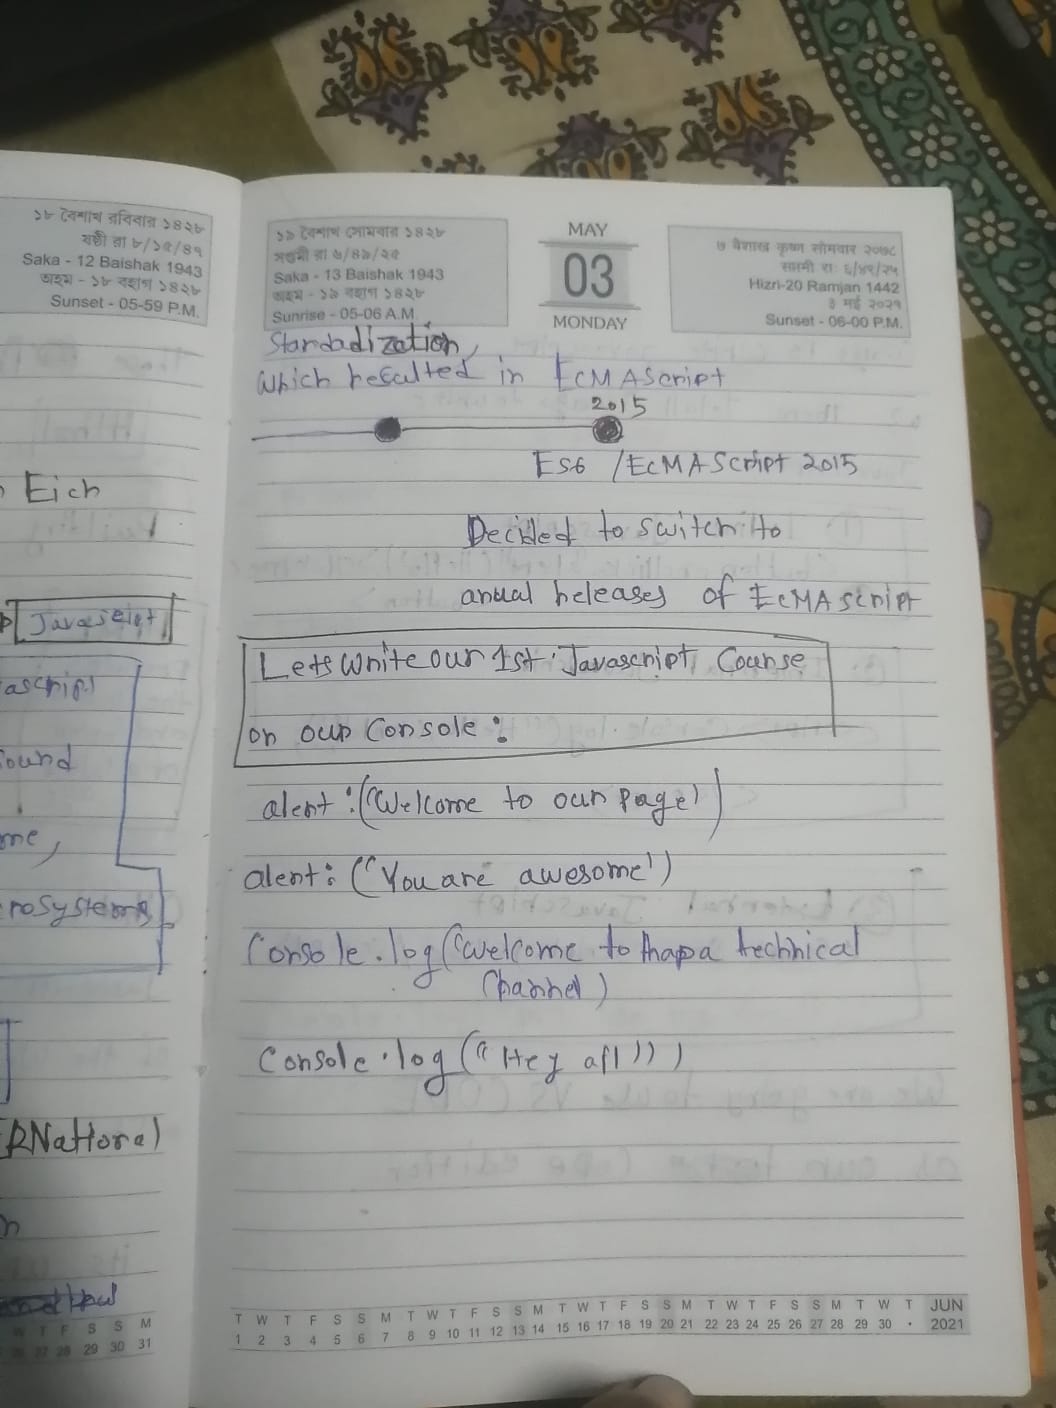 ১৮ বৈশাখ রবিবার ১৪২৮
ষষ্ঠী রা ৮/১৫/৪৭
Saka - 12 Baishak 1943
অহম - ১৮ বহাগ ১৪২৮
Sunset - 05-59 P.M.
Eich
Javascript
ascript
ound
me,
rosystems
RNational
n
S S M
27 28 29 30 31
১৯ বৈশাখ সোমবার ১৪২৮
সপ্তমী রা ৬/৪৯/২৫
Saka - 13 Baishak 1943
অহম - ১৯ বহাগ ১৪২৮
Sunrise - 05-06 A.M
MAY
03
MONDAY
७ बैशाख कृष्ण सोमवार २०७८
सप्तमी रा: ६/४९/२५
Hizri-20 Ramjan 1442
३ मई २०२१
Sunset - 06-00 P.M.
Standadization,
which resulted in EcMAScript
2015
ES6 /EcMAScript 2015
Decided to switch to
anual releases of EcMAscript
Lets write our 1st Javascript Course
on our Console :
alert :("Welcome to our page")
alert: ("You are awesome")
Console.log("welcome to thapa technical
Channel)
Console.log("Hey all"))
T W T F S S M T W T F S S M T W T F S S M T W T F S S M T W T JUN
1 2 3 4 5 6 7 8 9 10 11 12 13 14 15 16 17 18 19 20 21 22 23 24 25 26 27 28 29 30 • 2021